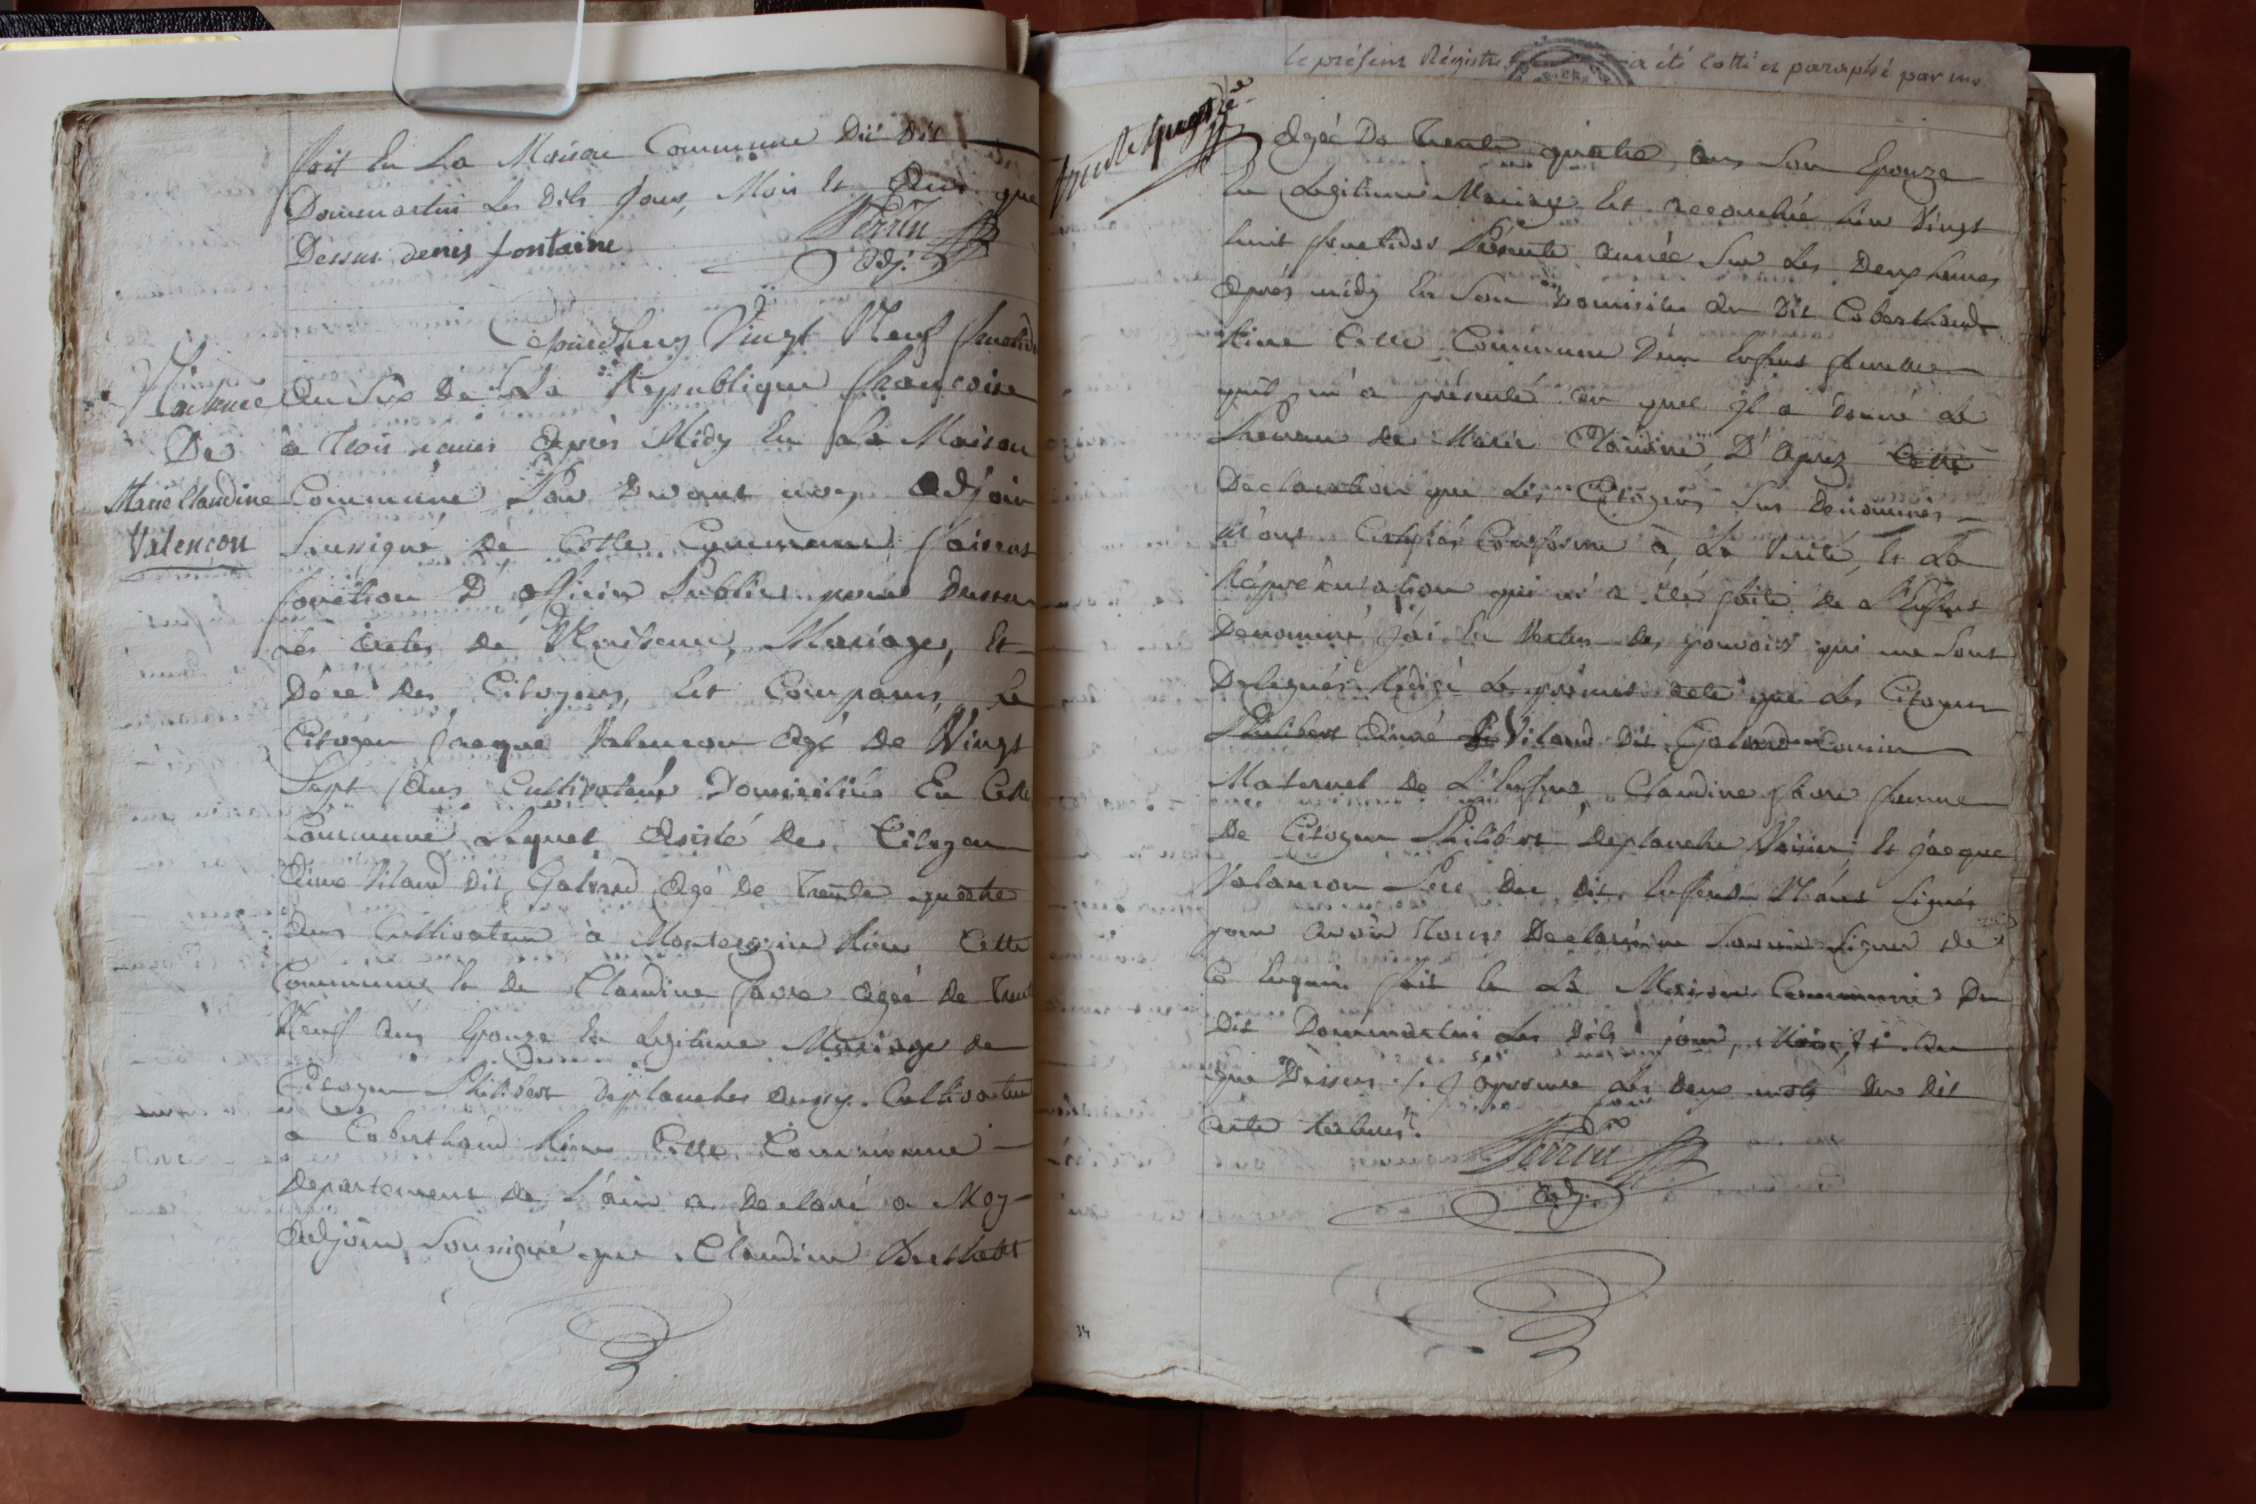 fait En La Maison Commune Dii dit
Dommartin Les dits Jour, Mois Et An que
Dessus denis fontaine
Perrin
Adj.
Cejourdhuy Vingt Neuf fructidor
Naissance
De
Marie Claudine
Valencon
An Six De La Republique francoise
a trois heures Après Midy En La Maison
Commune Par Devant moy Adjoin
Soussigné De Cette Commune faisant
fonction D'officier Publics pour dresser
Les actes de Naissance, Mariage, Et
Décé Des Citoyens, Est Comparus, Le
Citoyen Jacque Valencon Agé De Vingt
Sept Ans Cultivateur Domiciliés En Cette
Commune Lequel Asisté des Citoyen
Aimé Vilaud Dit Galand Agé De Trente quatre
Ans Cultivateur à Montezin Rière Cette
Commune Et De Claudine favre Agée De Trente
Neuf Ans Epouze En Legitime Mariage de
Citoyen Philibert Deplanche Aussy Cultivateur
a Coberthoud Rière Cette Commune
Departement De L'ain a Declaré a Moy
Adjoin Soussigné que Claudine Berthelet
le présent Régistre a été Cotté et paraphé par moy
trente quatre
Agée De Trente quatre Ans Son Epouze
En Legitime Mariage Est accouchée hier Vingt
huit fructidor Présente année Sur Les Deux heures
Après midy En Son Domicile Au Dit Coberthoud
Rière Cette Commune D'un Enfant femelle
quil m'a présenté au quel Il a Donné Le
Prenom de Marie Claudine, D'Aprez Cette
Declaration que Les Citoyens Sus Denommés
M'ont Certifiés Conforme à La Verité, Et La
Représentation qui m'a été faite de l'Enfant
Denommé, J'ai En Vertus des pouvoirs qui me Sont
Delegués Rédigé Le présent acte que Les Citoyens
Philibert Aimé Vilaud Dit Galand Cousin
Maternel De L'Enfant Claudine favre femme
De Citoyen Philibert Deplanche Voisin, Et Jacque
Valancon Pere Du dit Enfant N'ont Signés
pour Avoir Tous Declarés ne Savoir Signer de
Ce Enquis fait En La Maison Commune Du
Dit Dommartin Les Dits jour, Mois, Et An
Que Dessus J'approuve Les Deux mots Du Dit
Acte
Perrin
Adj.
34